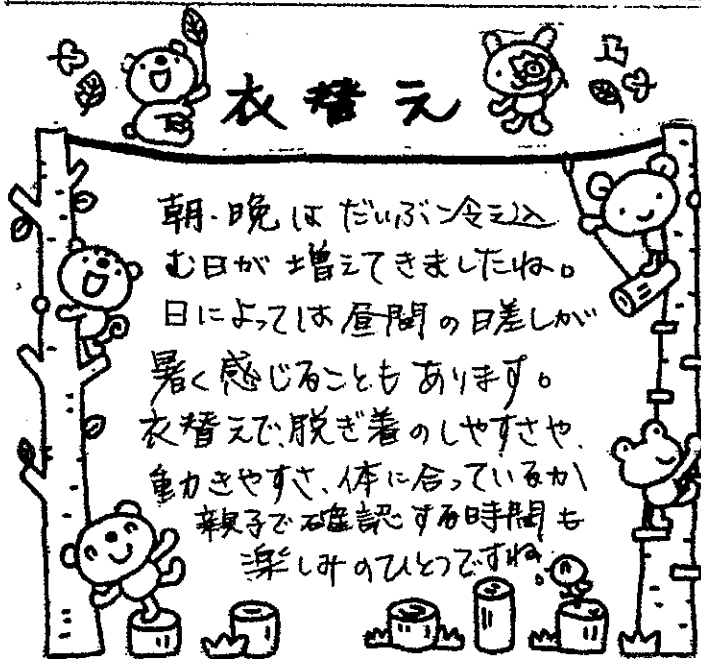 衣替え
朝・晩はだいぶ冷え込
む日が増えてきましたね。
日によっては昼間の日差しが
暑く感じることもあります。
衣替えで、脱ぎ着のしやすさや、
動きやすさ、体に合っているか
親子で確認する時間も
楽しみのひとつですね。